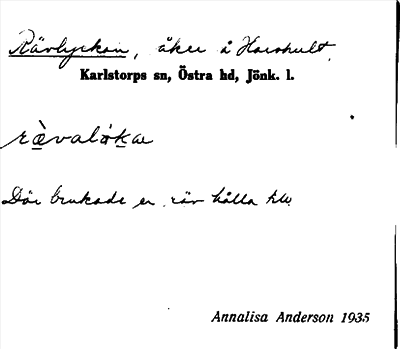 Rävlyckan, åker å Harshult
Karlstorps sn, Östra hd, Jönk. l.
rævaløkaʀ
Där brukade en räv hålla till.
Annalisa Anderson 1935